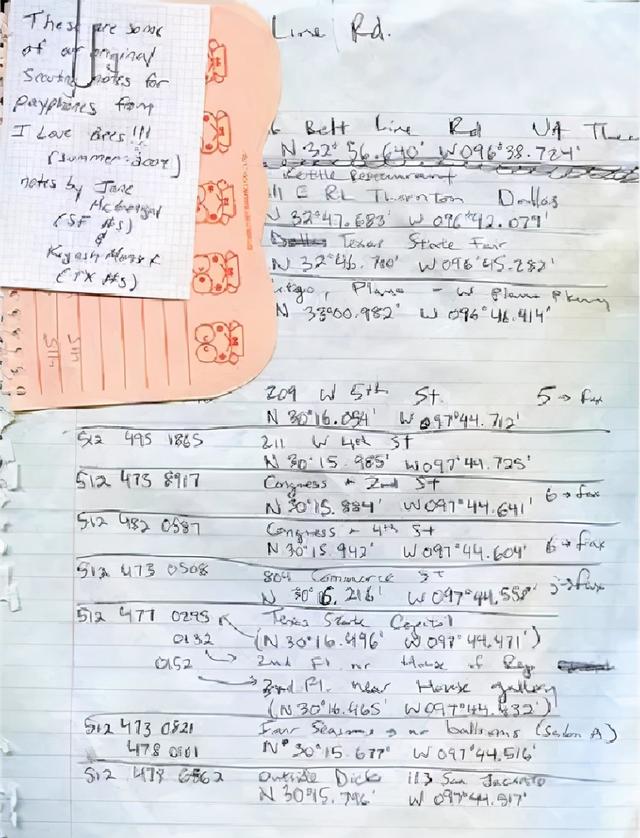 These are some
of our original
Scouting notes for
payphones from
I Love Bees!!!
(summer 2004)
notes by Jane
McGonigal
(SF #s)
&
(TX #s)
415
415
Line Rd.
Belt Line Rd
N 32°56.640' W 096°38.724'
Kettle Restaurant
E RL Thornton Dallas
N 32°47.683' W 096°42.079'
Texas State Fair
N 32°46.780' W 096°45.282'
Plano - W Plano Pkwy
N 33°00.982' W 096°46.414'
209 W 5th St. 5 → fax
N 30°16.054' W 097°44.712'
512 495 1865 211 W 4th St
N 30°15.985' W 097°44.725'
512 473 8917 Congress + 2nd St
N 30°15.884' W 097°44.641' 6 → fax
512 482 0587 Congress + 4th St
N 30°15.942' W 097°44.604' 6 → fax
512 473 0508 804 Commerce St
W 097°44.558' → fax
512 477 0295 Texas State Capitol
0132 (N 30°16.496' W 097°44.471')
0152 2nd Fl. nr House of Rep
3rd Fl. near House gallery
(N 30°16.465' W 097°44.432')
512 473 0821 Four Seasons nr ballrooms
478 N 30°15.677' W 097°44.516'
512 478 6862 outside Dicks 113 San Jacinto
W 097°44.517'